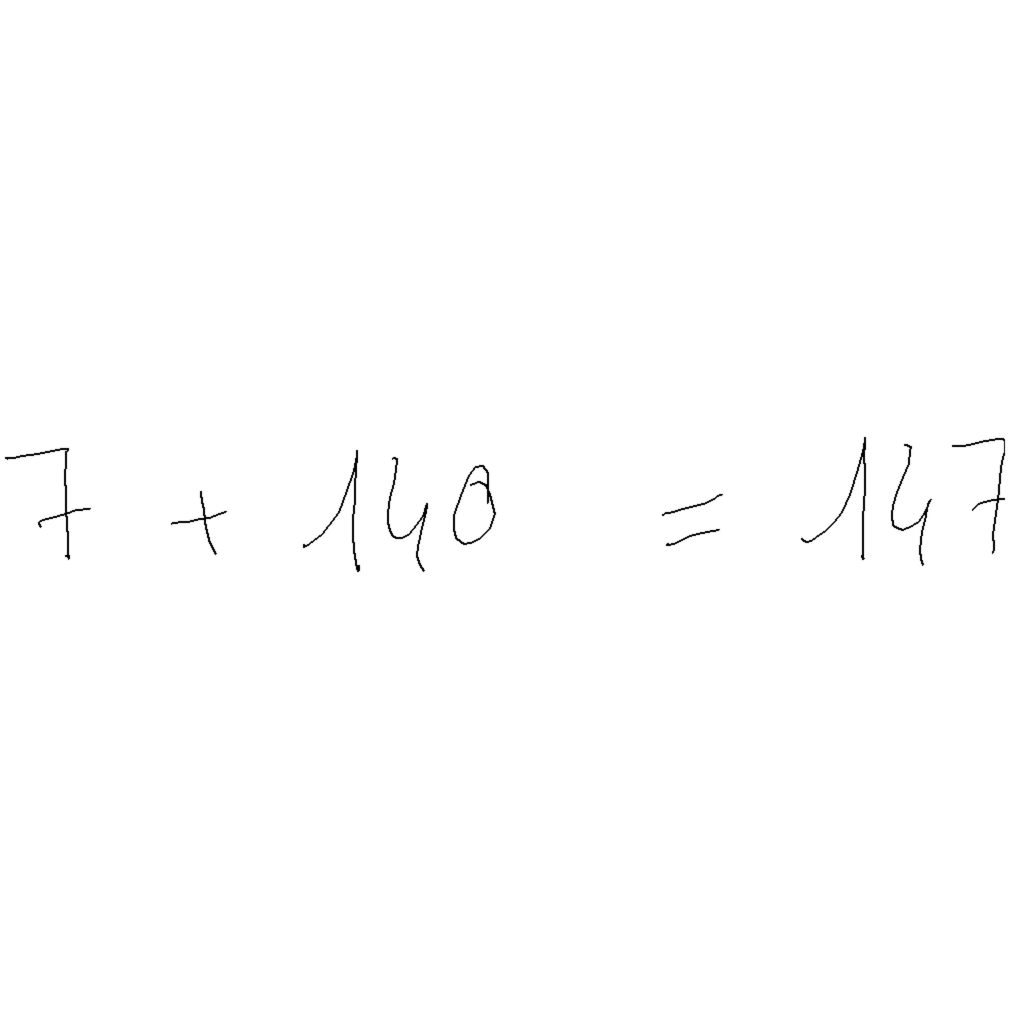 7 + 140 = 147